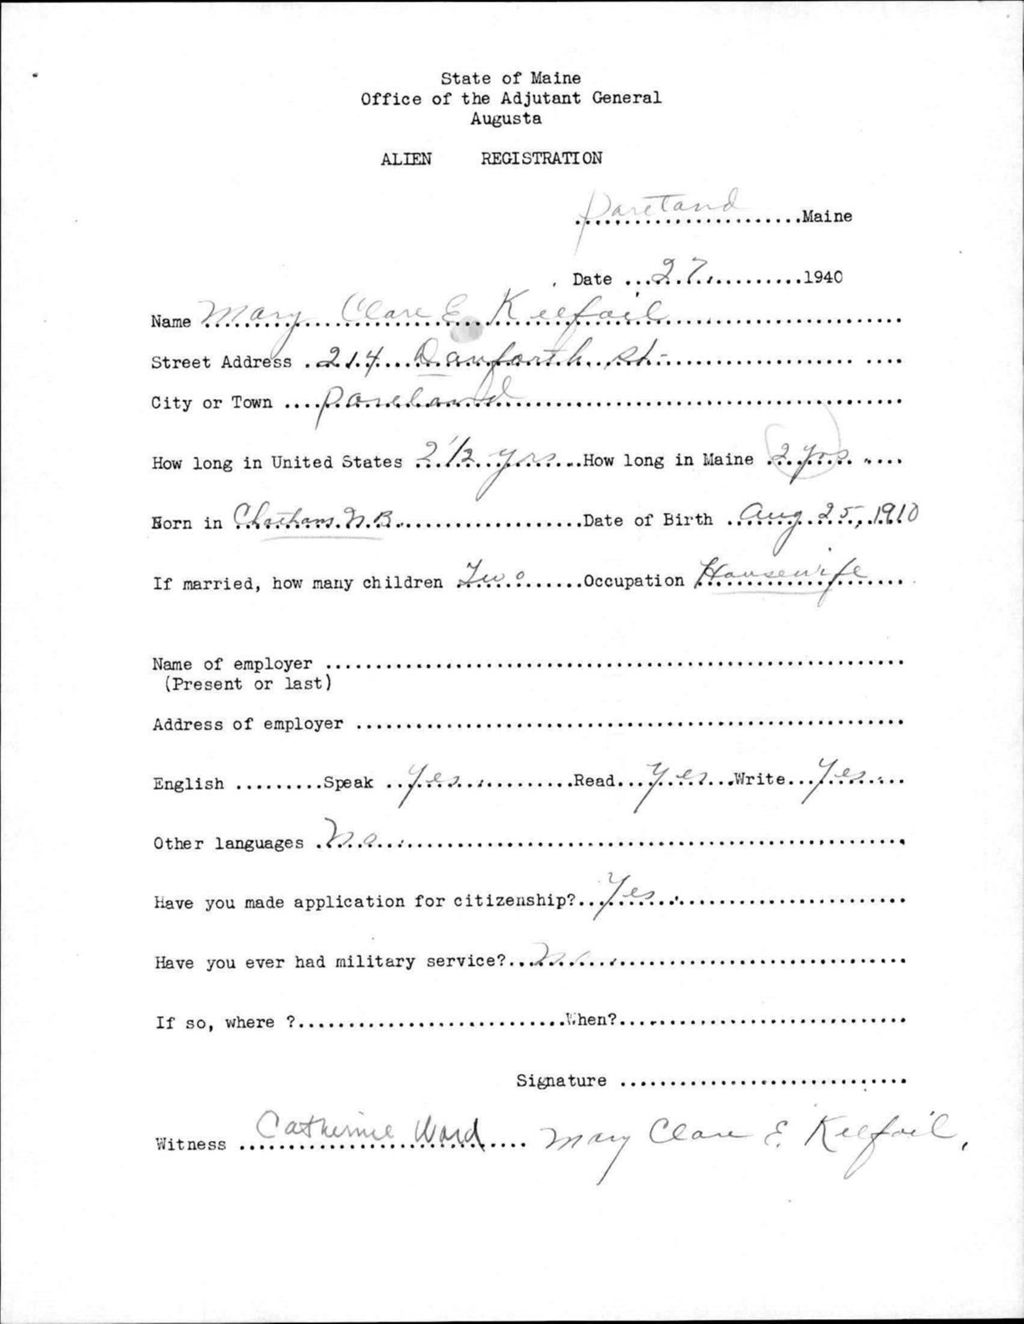 State of Maine
Office of the Adjutant General
Augusta
ALIEN REGISTRATION
Portland Maine
Date 27 1940
Name Mary Clare E. Keefoil
Street Address 214 Danforth St.
City or Town Portland
How long in United States 2 1/2 yrs How long in Maine 2 yrs
Born in Chatham N.B. Date of Birth Aug 25, 1910
If married, how many children Two Occupation Housewife
Name of employer
(Present or last)
Address of employer
English Speak Yes Read Yes Write Yes
Other languages No
Have you made application for citizenship? Yes
Have you ever had military service? No
If so, where ? When?
Signature
Witness Catherine Ward Mary Clare E. Keefoil